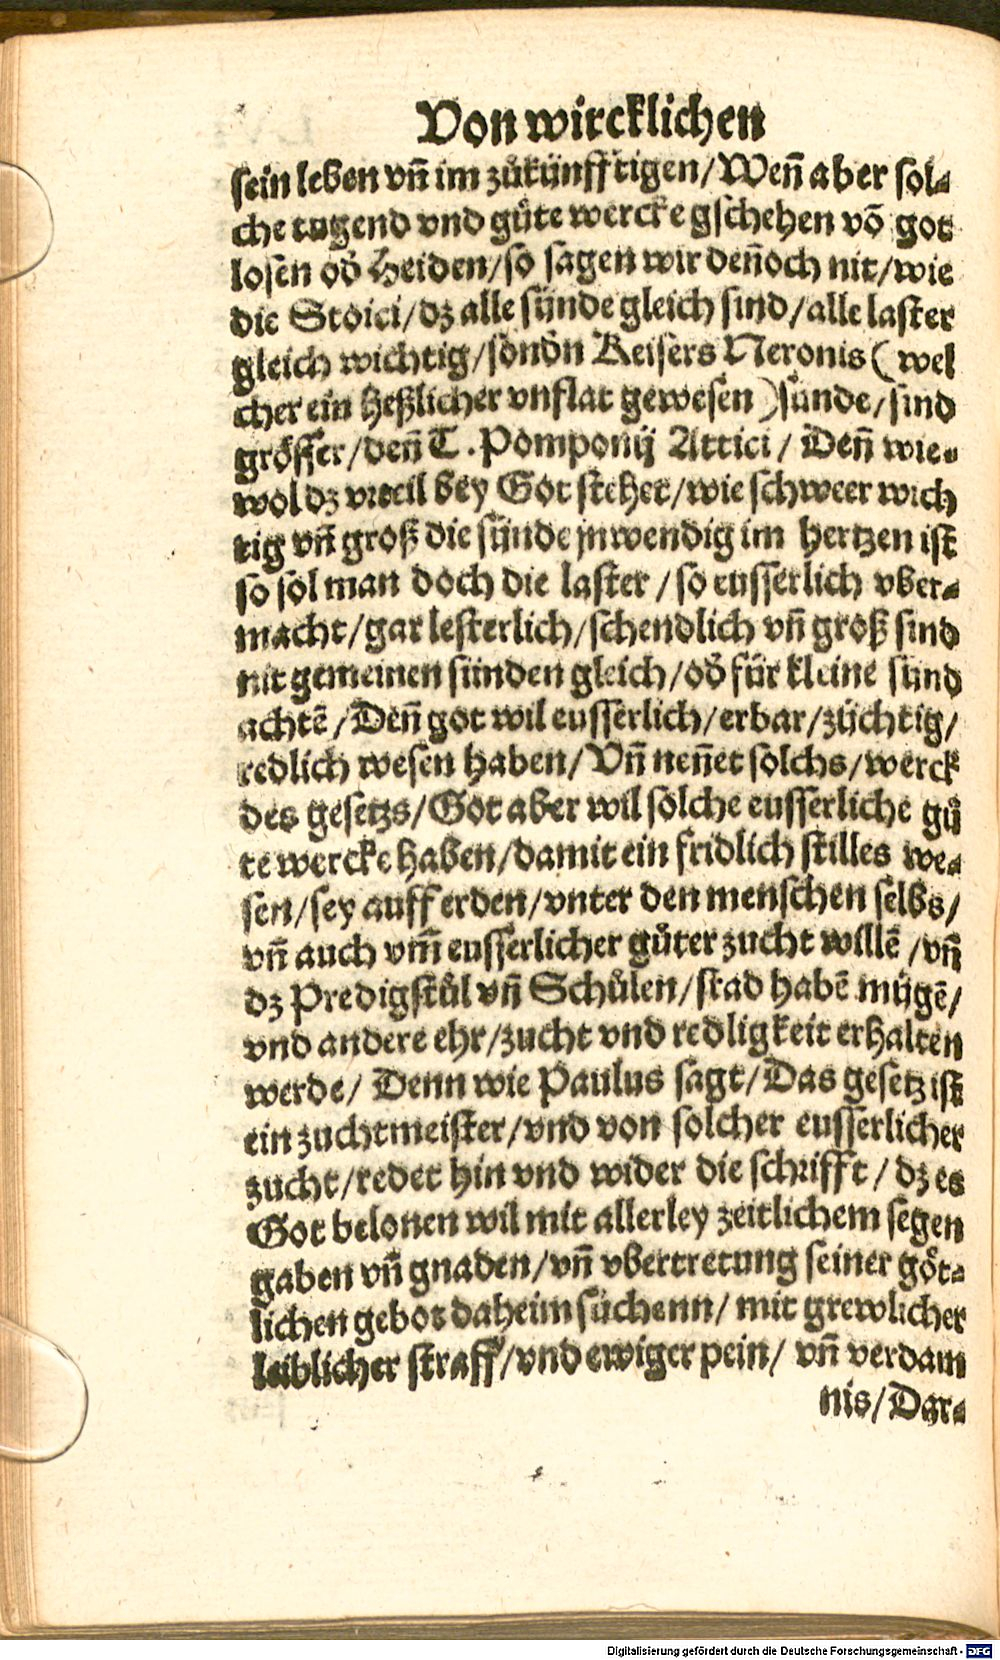 Von wircklichen
sein leben vñ im zůkünfftigen/Weñ aber sol-
che tugend vnd gůte wercke gschehen võ got
losen od' Heiden/so sagen wir deñoch nit/wie
die Stoici/dz alle sünde gleich sind/alle laster
gleich wichtig/sondn̄ Keisers Neronis (wel
cher ein heßlicher vnflat gewesen )sünde/sind
grösser/deñ T. Pomponij Attici/ Deñ wie-
wol dz vrteil bey Got stehet/wie schweer wich
tig vñ groß die sünde jnwendig im hertzen ist
so sol man doch die laster /so eusserlich vber-
macht/gar lesterlich/schendlich vñ groß sind
nit gemeinen sünden gleich/od' für kleine sünd
achtē/Deñ got wil eusserlich/erbar/züchtig/
redlich wesen haben/Vñ neñet solchs/werck
des gesetzs/Got aber wil solche eusserliche gů
te wercke haben/damit ein fridlich stilles we-
sen/sey auff erden/vnter den menschen selbs/
vñ auch vm̄ eusserlicher gůter zucht willē/vñ
dz Predigstůl vñ Schůlen/stad habē mügē/
vnd andere ehr/zucht vnd redligkeit erhalten
werde/ Denn wie Paulus sagt/Das gesetz ist
ein zuchtmeister/vnd von solcher eusserlicher
zucht/redet hin vnd wider die schrifft/ dz es
Got belonen wil mit allerley zeitlichem segen
gaben vñ gnaden/vñ vbertretung seiner göt-
lichen gebot daheim süchenn/ mit grewlicher
leiblicher straff/vnd ewiger pein/ vñ verdam
nis/Dar-
Digitalisierung gefördert durch die Deutsche Forschungsgemeinschaft - DFG